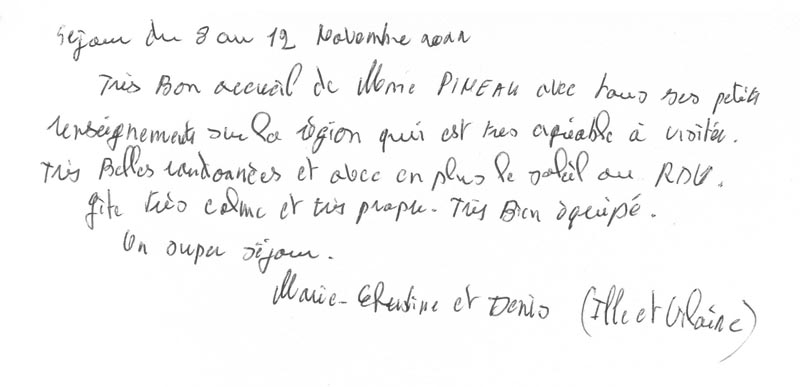 Séjour du 8 au 12 Novembre 2011
Très Bon accueil de Mme PINEAU avec tous ses petits
renseignements sur la région qui est très agréable à visiter.
Très Belles randonnées et avec en plus le soleil au RDV.
Gite très calme et très propre. Très Bien équipé.
Un super séjour.
Marie-Christine et Denis (Ille et Vilaine)